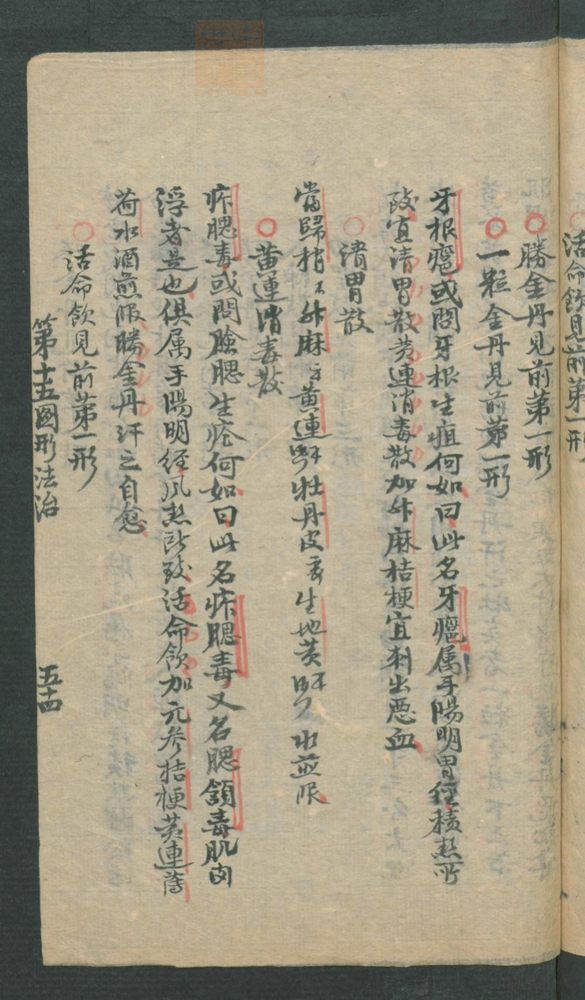 活命飲見前第一形
○勝金丹見前第一形
○一粒金丹見前第一形
牙根癰或問牙根生疽何如曰此名牙癰属手陽明胃经積热所
致宜清胃散黄連消毒散加升麻桔梗宜刺出惡血
○清胃散
當歸梢 升麻 黄連 牡丹皮 生地黄 水煎服
○黄連消毒散
痄腮毒或問臉腮生疮何如曰此名痄腮毒又名腮頷毒肌肉
浮者是也俱属手陽明经风热所致活命飲加元參桔梗黄連薄
荷水酒煎服勝金丹汗之自愈
○活命飲見前第一形
第十五图形法治
五十四